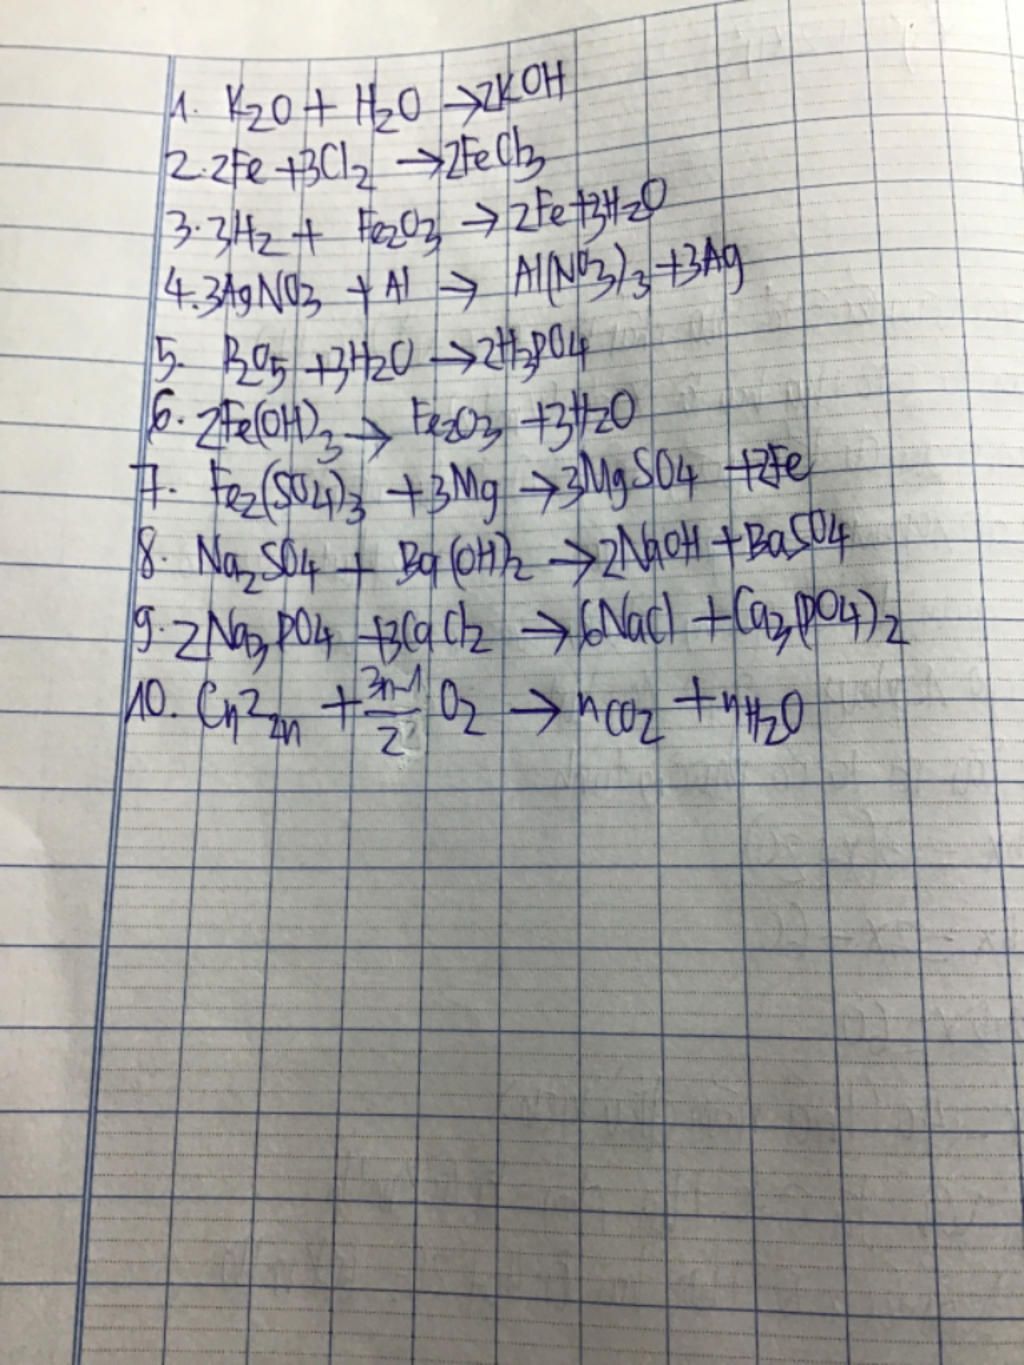 1. K2O + H2O → 2KOH
2. 2Fe + 3Cl2 → 2FeCl3
3. 3H2 + Fe2O3 → 2Fe + 3H2O
4. 3AgNO3 + Al → Al(NO3)3 + 3Ag
5. P2O5 + 3H2O → 2H3PO4
6. 2Fe(OH)3 → Fe2O3 + 3H2O
7. Fe2(SO4)3 + 3Mg → 3MgSO4 + 2Fe
8. Na2SO4 + Ba(OH)2 → 2NaOH + BaSO4
9. 2Na3PO4 + 3CaCl2 → 6NaCl + Ca3(PO4)2
10. Cn22n + 3n-1/2 O2 → nCO2 + nH2O